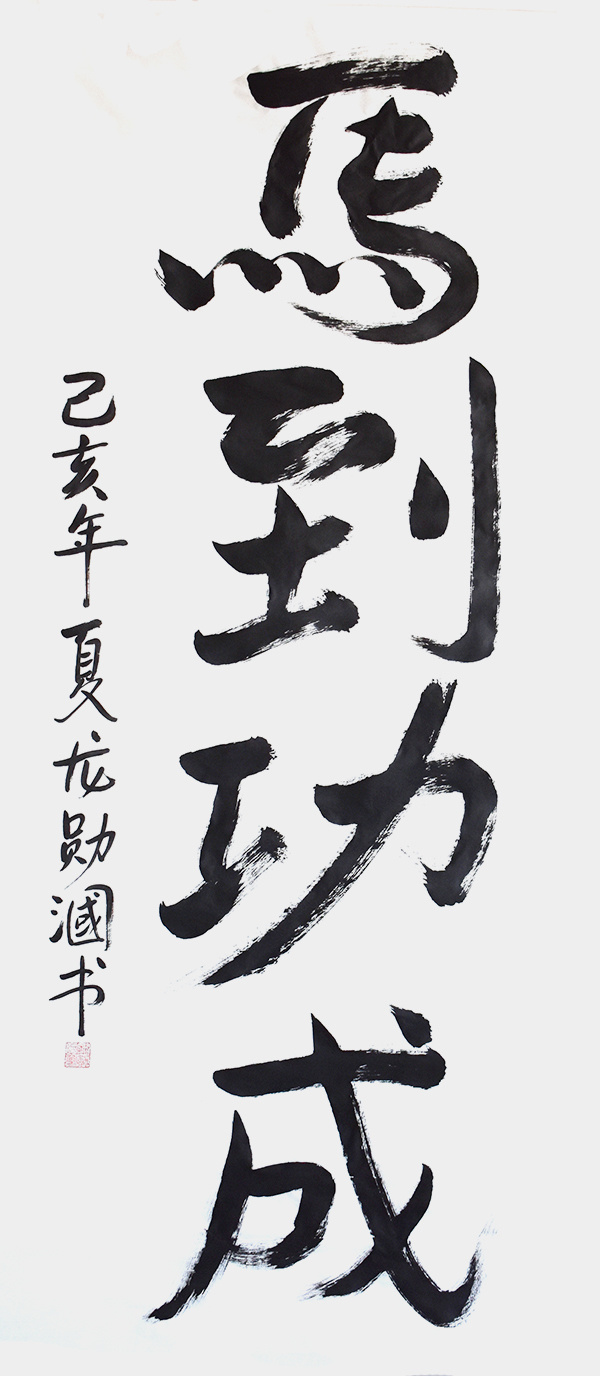 馬到功成
己亥年夏龙勋漍书